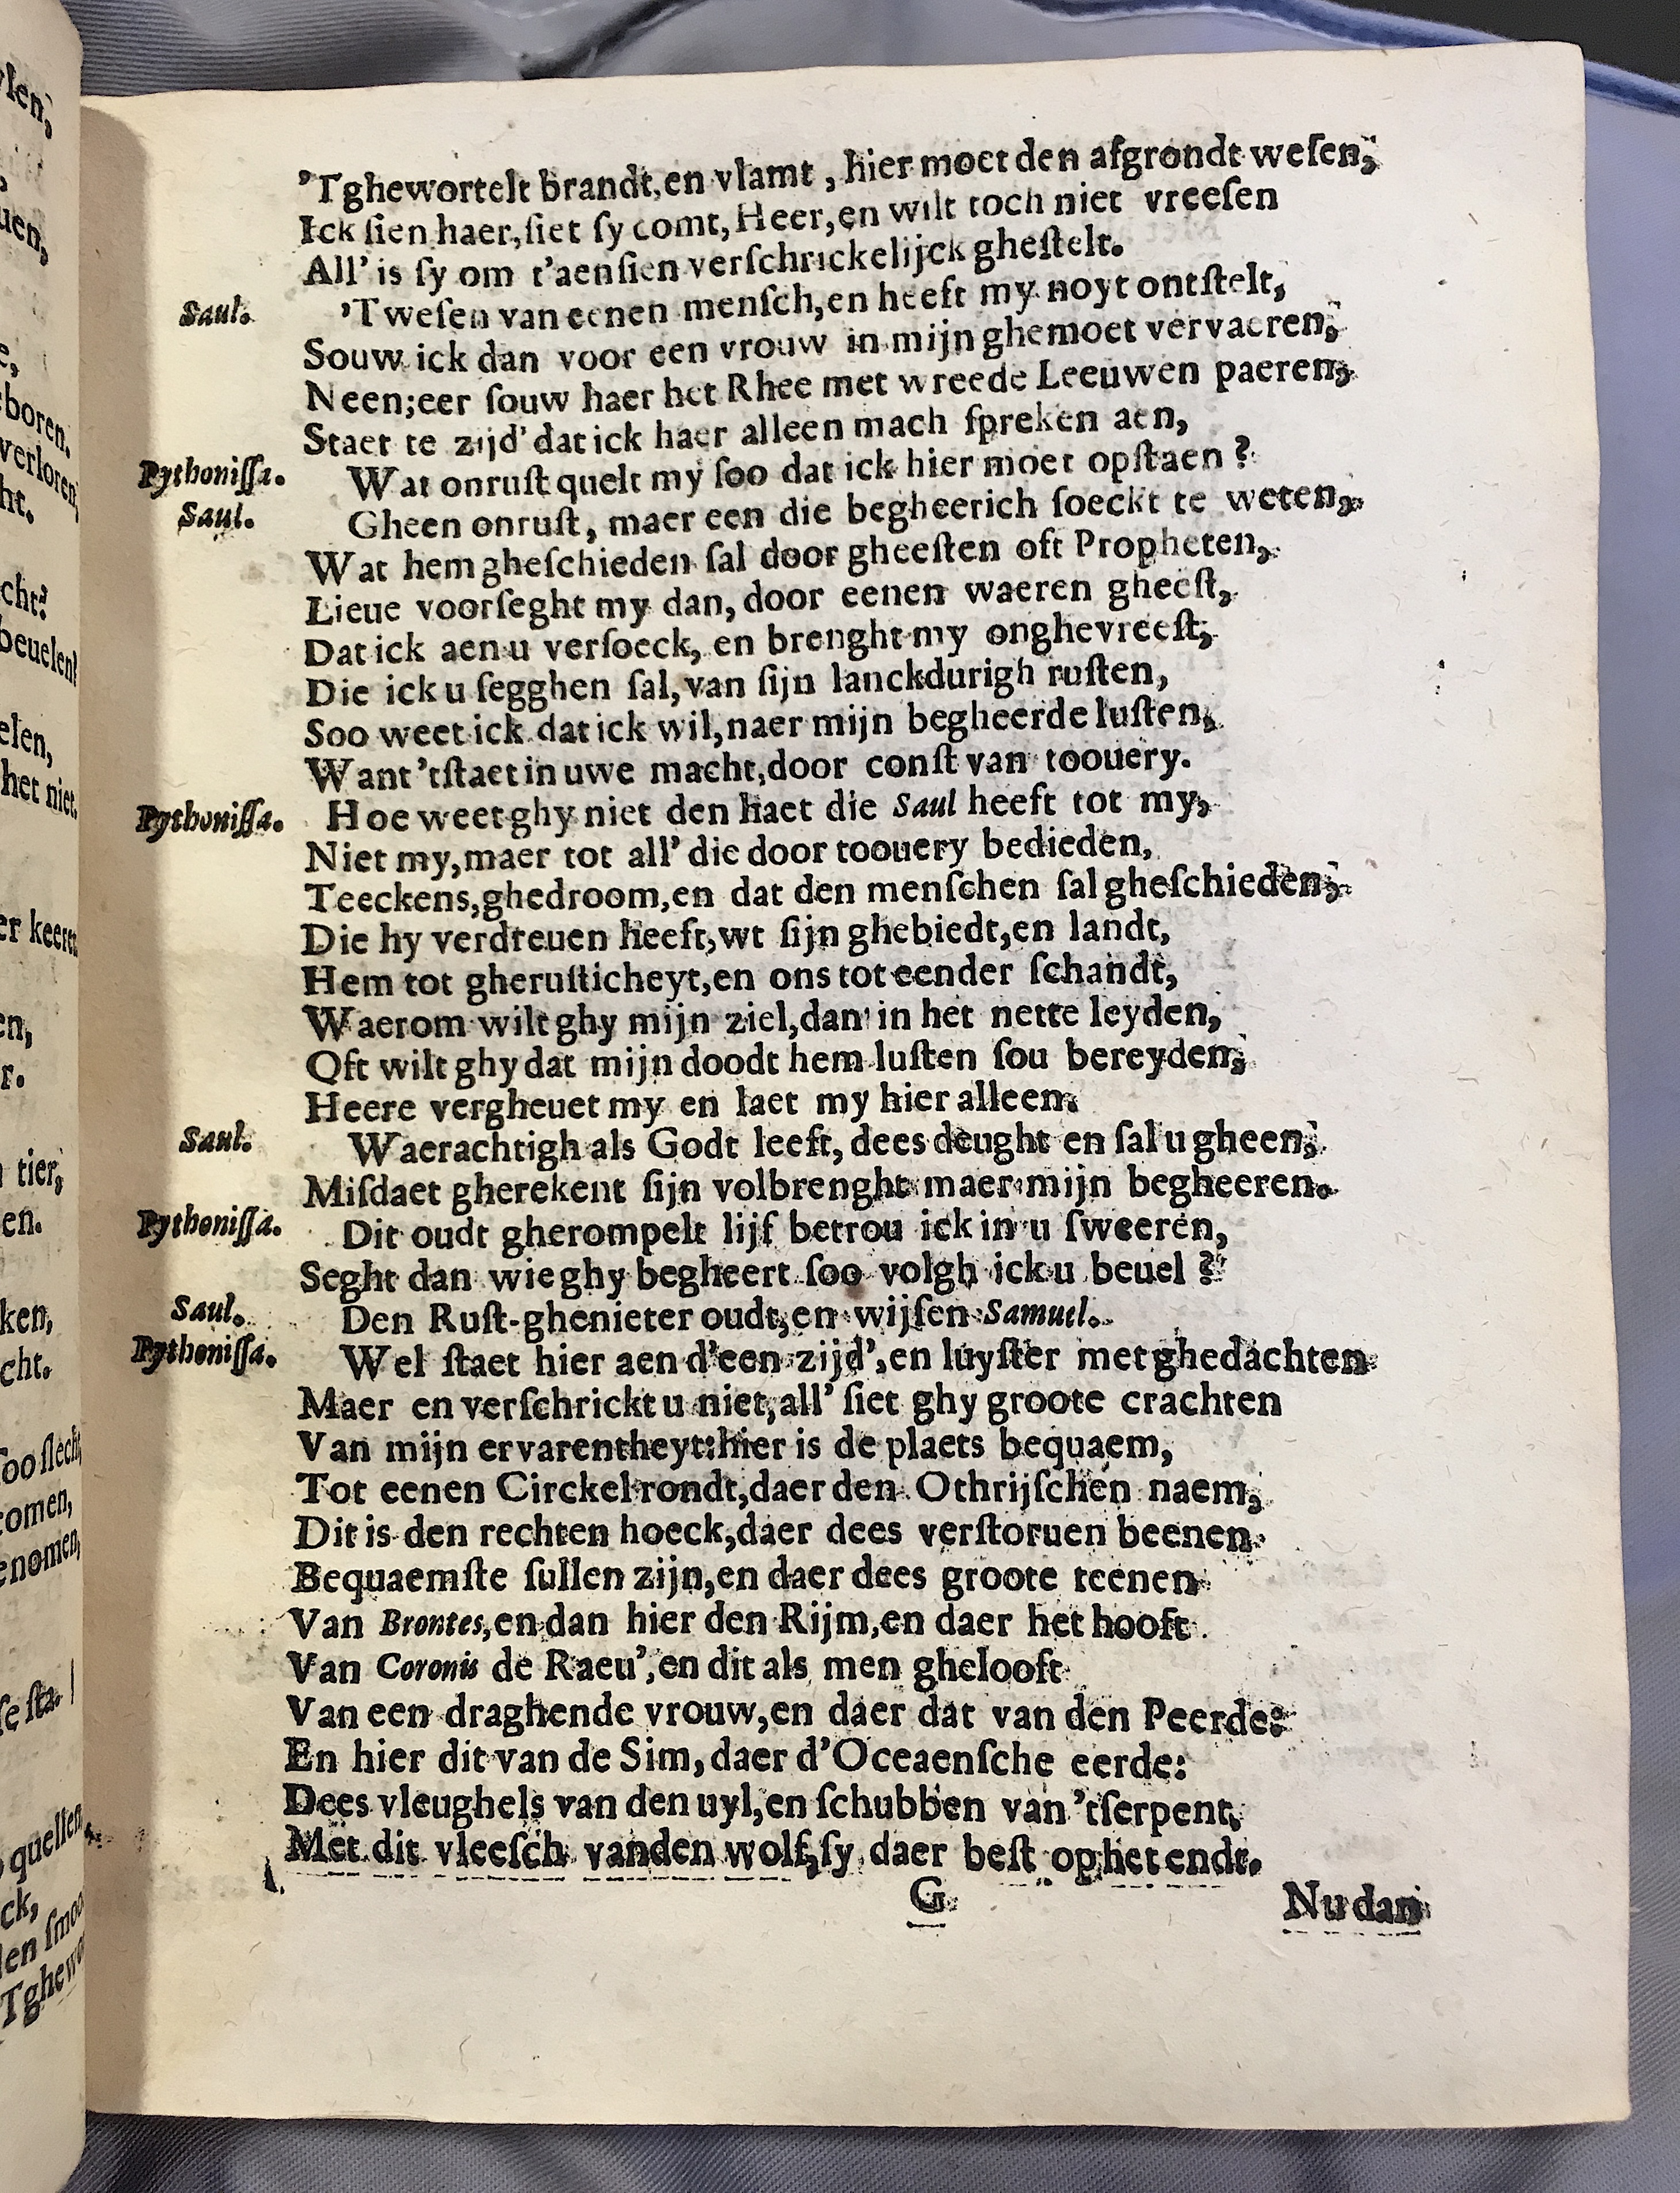 'Tghewortelt brandt, en vlamt, hier moet den afgrondt weſen,
Ick ſien haer, ſiet ſy comt, Heer, en wilt toch niet vreeſen
All' is ſy om t'aenſien verſchrickelijck gheſtelt.
Saul. 'Tweſen van eenen menſch, en heeft my noyt ontſtelt,
Souw ick dan voor een vrouw in mijn ghemoet vervaeren,
Neen; eer ſouw haer het Rhee met wreede Leeuwen paeren,
Staet te zijd' dat ick haer alleen mach ſpreken aen,
Pythoniſſa. Wat onruſt quelt my ſoo dat ick hier moet opſtaen?
Saul. Gheen onruſt, maer een die begheerich ſoeckt te weten,
Wat hem gheſchieden ſal door gheeſten oft Propheten,
Lieue voorſeght my dan, door eenen waeren gheeſt,
Dat ick aen u verſoeck, en brenght my onghevreeſt,
Die ick u ſegghen ſal, van ſijn lanckdurigh ruſten,
Soo weet ick dat ick wil, naer mijn begheerde luſten,
Want 'tſtaet in uwe macht, door conſt van toouery.
Pythoniſſa. Hoe weet ghy niet den haet die Saul heeft tot my,
Niet my, maer tot all' die door toouery bedieden,
Teeckens, ghedroom, en dat den menſchen ſal gheſchieden,
Die hy verdreuen heeft, wt ſijn ghebiedt, en landt,
Hem tot gheruſticheyt, en ons tot eender ſchandt,
Waerom wilt ghy mijn ziel, dan in het nette leyden,
Oft wilt ghy dat mijn doodt hem luſten ſou bereyden,
Heere vergheuet my en laet my hier alleen.
Saul. Waerachtigh als Godt leeft, dees deught en ſal u gheen,
Miſdaet gherekent ſijn volbrenght maer mijn begheeren.
Pythoniſſa. Dit oudt gherompelt lijf betrou ick in u ſweeren,
Seght dan wie ghy begheert ſoo volgh ick u beuel?
Saul. Den Ruſt-ghenieter oudt, en wijſen Samuel.
Pythoniſſa. Wel ſtaet hier aen d'een zijd', en luyſter met ghedachten
Maer en verſchrickt u niet, all' ſiet ghy groote crachten
Van mijn ervarentheyt: hier is de plaets bequaem,
Tot eenen Circkel rondt, daer den Othrijſchen naem,
Dit is den rechten hoeck, daer dees verſtoruen beenen
Bequaemſte ſullen zijn, en daer dees groote teenen
Van Brontes, en dan hier den Rijm, en daer het hooft
Van Coronis de Raeu', en dit als men ghelooft
Van een draghende vrouw, en daer dat van den Peerde:
En hier dit van de Sim, daer d'Oceaenſche eerde:
Dees vleughels van den uyl, en ſchubben van 'tſerpent,
Met dit vleeſch vanden wolf, ſy daer beſt op het endt.
G Nu dan